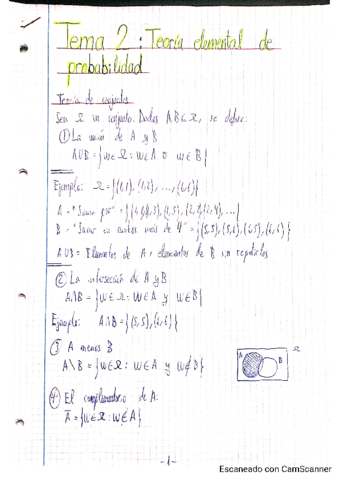 Tema 2: Teoría elemental de
probabilidad
Teoría de conjuntos
Sea Ω un conjunto. Dados A,B⊆Ω, se define:
① La unión de A y B
A∪B = {w∈Ω: w∈A o w∈B}
Ejemplo: Ω = {(1,1), (1,2), ..., (6,6)}
A = "Sumar par" =
B = "Sacar en ambos más de 4" = {(5,5), (5,6), (6,5), (6,6)}
A∪B = Elementos de A + elementos de B sin repetirlos
② La intersección de A y B
A∩B = {w∈Ω: w∈A y w∈B}
Ejemplo: A∩B = {(5,5), (6,6)}
③ A menos B
A\B = {w∈Ω: w∈A y w∉B}
Ω
A
B
④ El complementario de A:
Ā = {w∈Ω: w∉A}
-1-
Escaneado con CamScanner